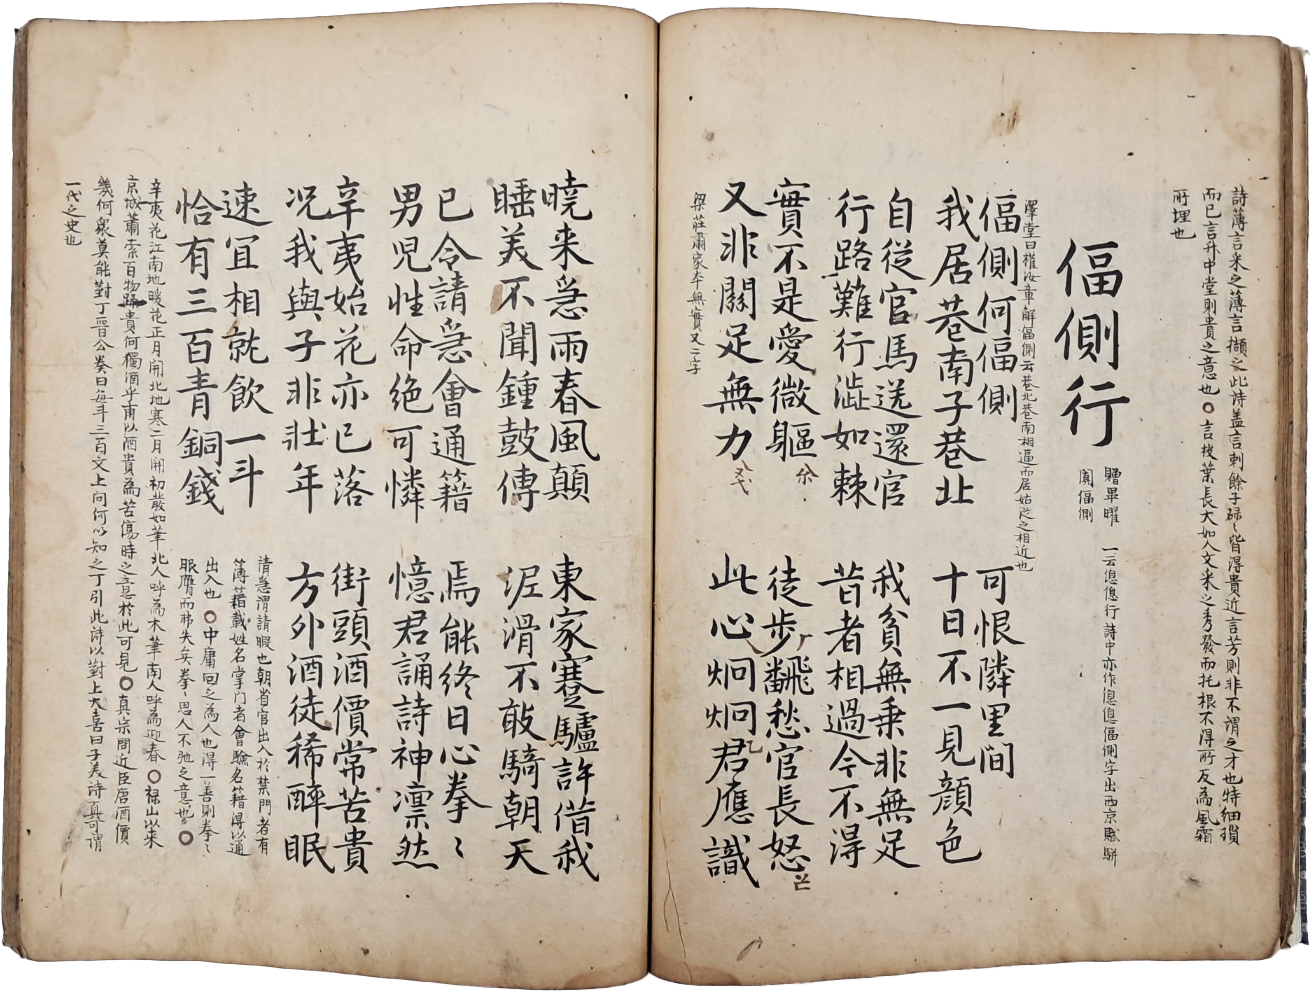 詩薄言采之薄言擷之此詩盖言剌餘子碌〻皆淂貴近言芳則非不謂之才也特細瑣
而已言升中堂則貴之意也○言枝葉長大如人文米之秀發而托根不得所反為風霜
所埋也
偪側行
贈畢曜
一云偪偪行詩中亦作偪偪偪側字出西京賦駢
闐偪側
澤堂曰權汝章解偪側云巷北巷南相逼而居姑從之相近也
偪側何偪側 可恨隣里間
我居巷南子巷北 十日不一見顔色
自從官馬送還官 我貧無乗非無足
行路難行澁如棘 昔者相過今不淂
實不是愛微軀 徒步飜愁官長怒
又非關足無力 此心炯炯君應識
梁莊肅家本無實又二字
曉来急雨春風顛 東家蹇驢許借我
睡美不聞鍾鼓傳 泥滑不敢騎朝天
已令請急會通籍 焉能終日心拳〻
男児性命絶可憐 憶君誦詩神凛然
辛夷始花亦已落 街頭酒價常苦貴
况我與子非壮年 方外酒徒稀醉眠
速宜相就飲一斗
恰有三百青銅錢
請急謂請暇也朝省官出入於禁門者有
簿籍載姓名掌门者會驗名籍淂以通
出入也○中庸回之為人也得一善則拳〻
服膺而弗失矣拳〻思人不弛之意也○
辛夷花江南地暖花正月開北地寒二月開初發如筆北人呼為木筆南人呼為迎春○禄山以来
京城蕭索百物踊貴何獨酒乎甫以酒貴為苦傷時之意於此可見○真宗問近臣唐酒價
幾何衆莫能對丁晋公奏曰每斗三百文上问何以知之丁引此詩以對上大喜曰子美詩真可謂
一代之史也